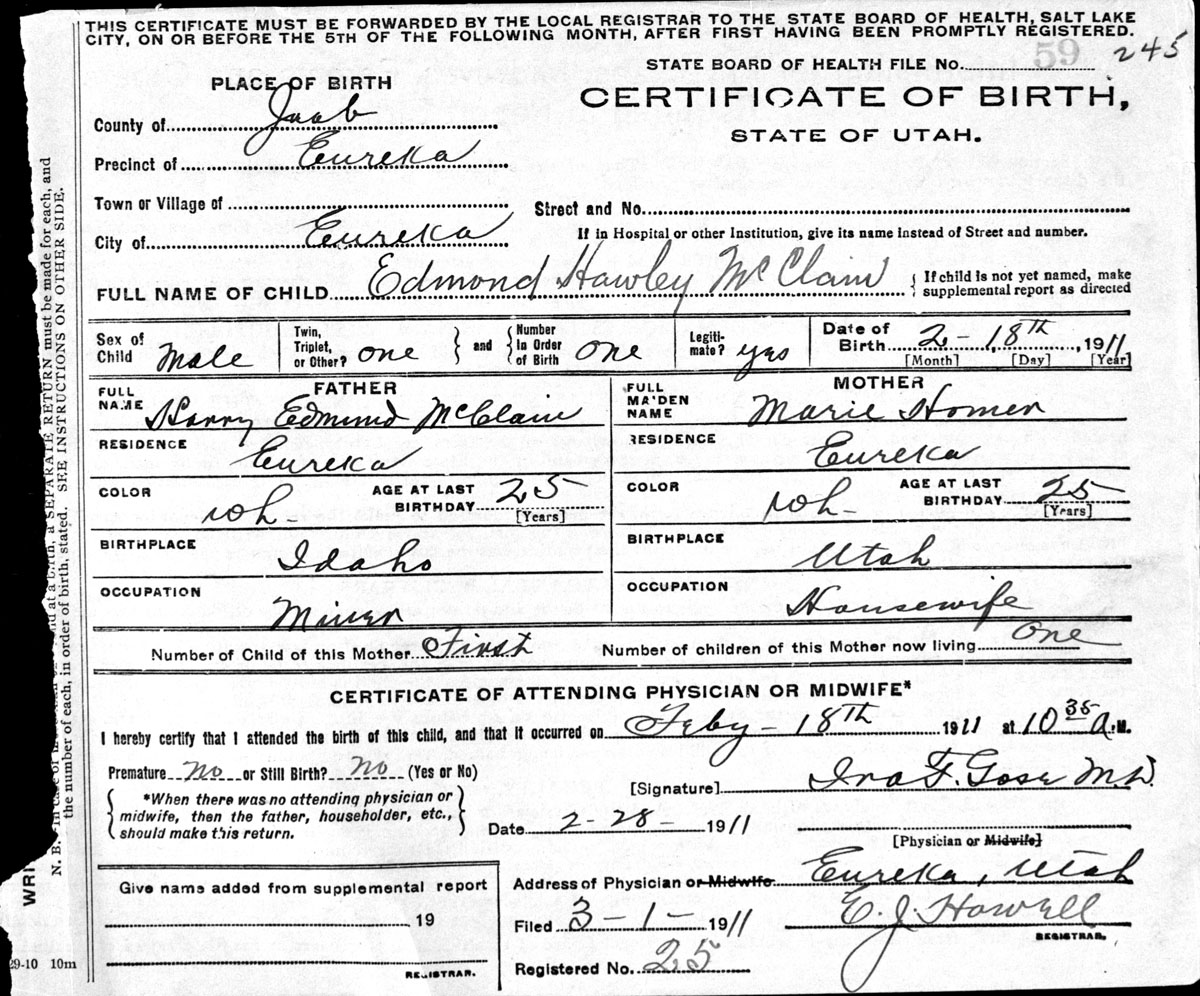 THIS CERTIFICATE MUST BE FORWARDED BY THE LOCAL REGISTRAR TO THE STATE BOARD OF HEALTH, SALT LAKE
CITY, ON OR BEFORE THE 5TH OF THE FOLLOWING MONTH, AFTER FIRST HAVING BEEN PROMPTLY REGISTERED.
STATE BOARD OF HEALTH FILE No. 59 245
PLACE OF BIRTH
CERTIFICATE OF BIRTH,
STATE OF UTAH.
County of Juab
Precinct of Eureka
Town or Village of
Street and No.
City of Eureka
If in Hospital or other Institution, give its name instead of Street and number.
FULL NAME OF CHILD Edmond Hawley McClain { If child is not yet named, make
supplemental report as directed
Sex of Child Male
Twin, Triplet, or Other? one } and { Number In Order of Birth one
Legiti-mate? yes
Date of Birth 2 - 18th, 1911
[Month] [Day] [Year]
FATHER
FULL NAME Harry Edmund McClain
RESIDENCE Eureka
COLOR wh- AGE AT LAST BIRTHDAY 25
[Years]
BIRTHPLACE Idaho
OCCUPATION Miner
MOTHER
FULL MAIDEN NAME Marie Homer
RESIDENCE Eureka
COLOR wh- AGE AT LAST BIRTHDAY 25
[Years]
BIRTHPLACE Utah
OCCUPATION Housewife
Number of Child of this Mother First Number of children of this Mother now living one
CERTIFICATE OF ATTENDING PHYSICIAN OR MIDWIFE*
I hereby certify that I attended the birth of this child, and that it occurred on Feby - 18th 1911 at 10 35 A.M.
Premature No or Still Birth? No (Yes or No)
[Signature] Ira F. Gose M.D.
*When there was no attending physician or
midwife, then the father, householder, etc.,
should make this return.
Date 2-28- 1911
[Physician or Midwife]
Address of Physician or Midwife Eureka, Utah
Give name added from supplemental report
19
REGISTRAR.
Filed 3-1- 1911 E. J. Howell
REGISTRAR.
Registered No. 25
29-10 10m
WRI
N. B.
a SEPARATE RETURN must be made for each, and
the number of each, in order of birth, stated. SEE INSTRUCTIONS ON OTHER SIDE.